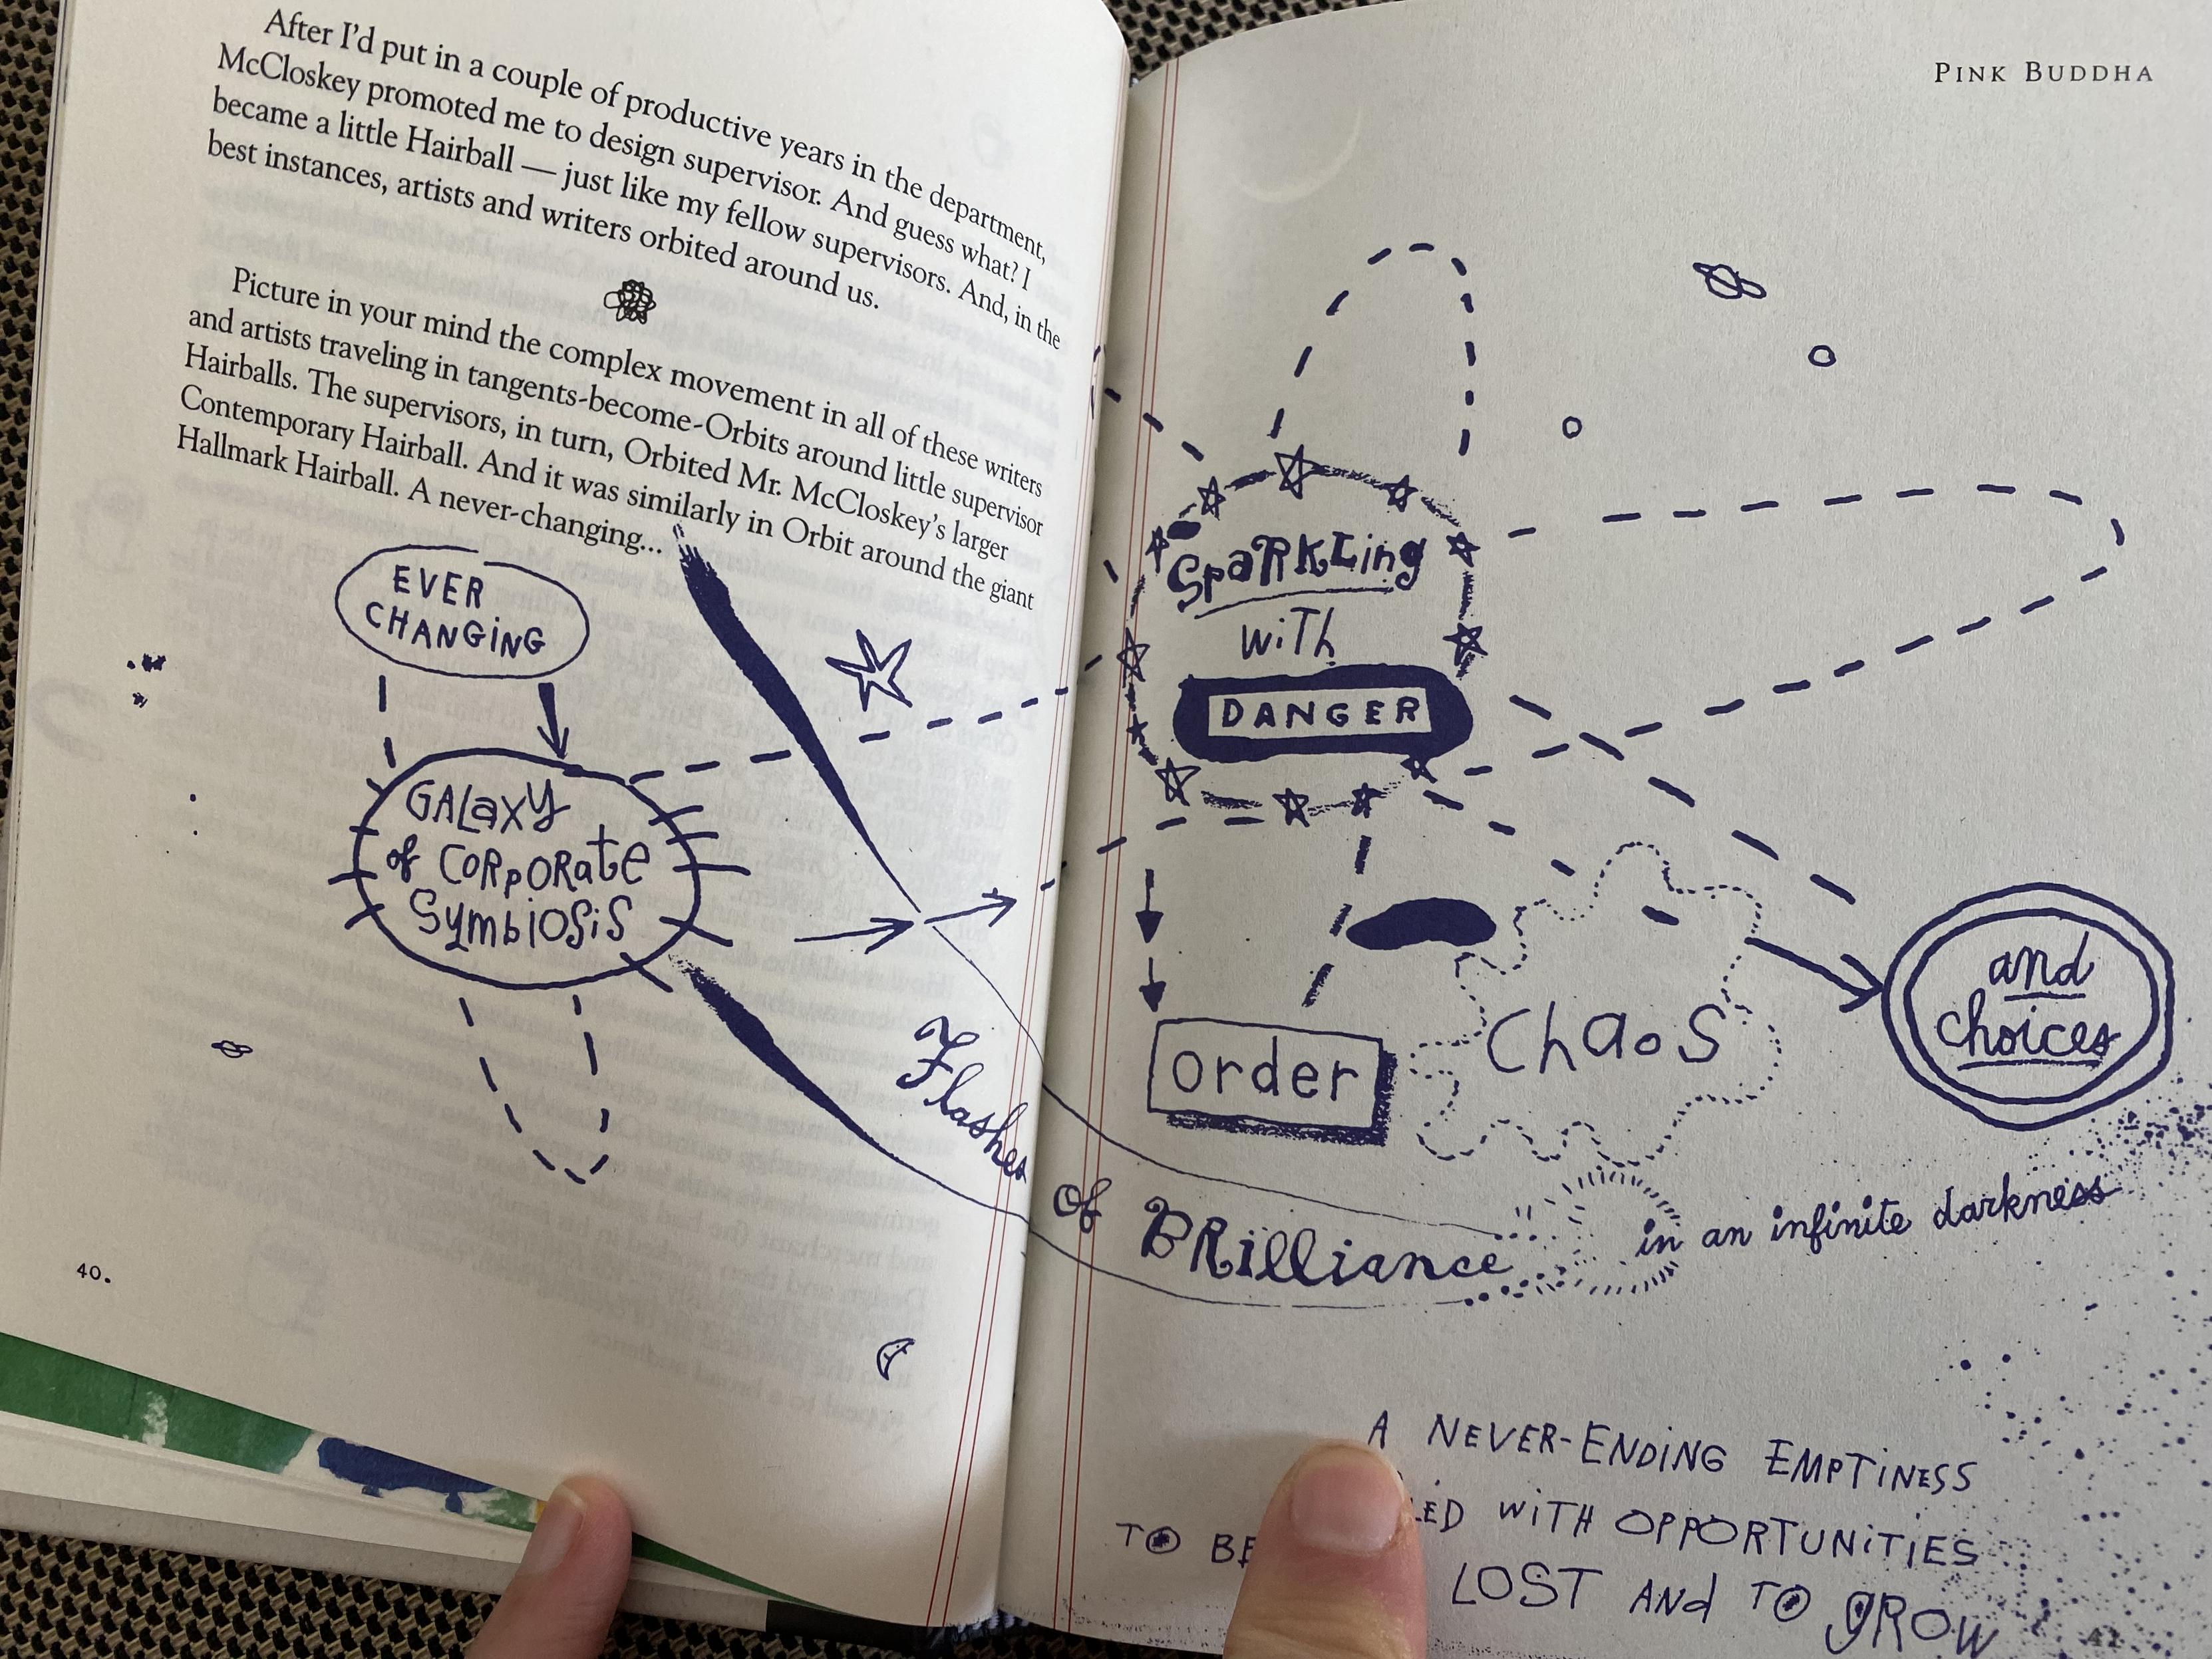 After I'd put in a couple of productive years in the department,
McCloskey promoted me to design supervisor. And guess what? I
became a little Hairball — just like my fellow supervisors. And, in the
best instances, artists and writers orbited around us.
Picture in your mind the complex movement in all of these writers
and artists traveling in tangents-become-Orbits around little supervisor
Hairballs. The supervisors, in turn, Orbited Mr. McCloskey's larger
Contemporary Hairball. And it was similarly in Orbit around the giant
Hallmark Hairball. A never-changing...
EVER
CHANGiNG
GALaXY
of CORpORatE
SymbiOSiS
Flashes
of BRilliance
in an infinite darkness
40.
PINK BUDDHA
SpaRKLing
with
DANGER
order
ChaoS
and
choices
A NEVER-ENDING EMPTINESS
WITH OPPORTUNITIES
TO LOST AND TO gROW
41